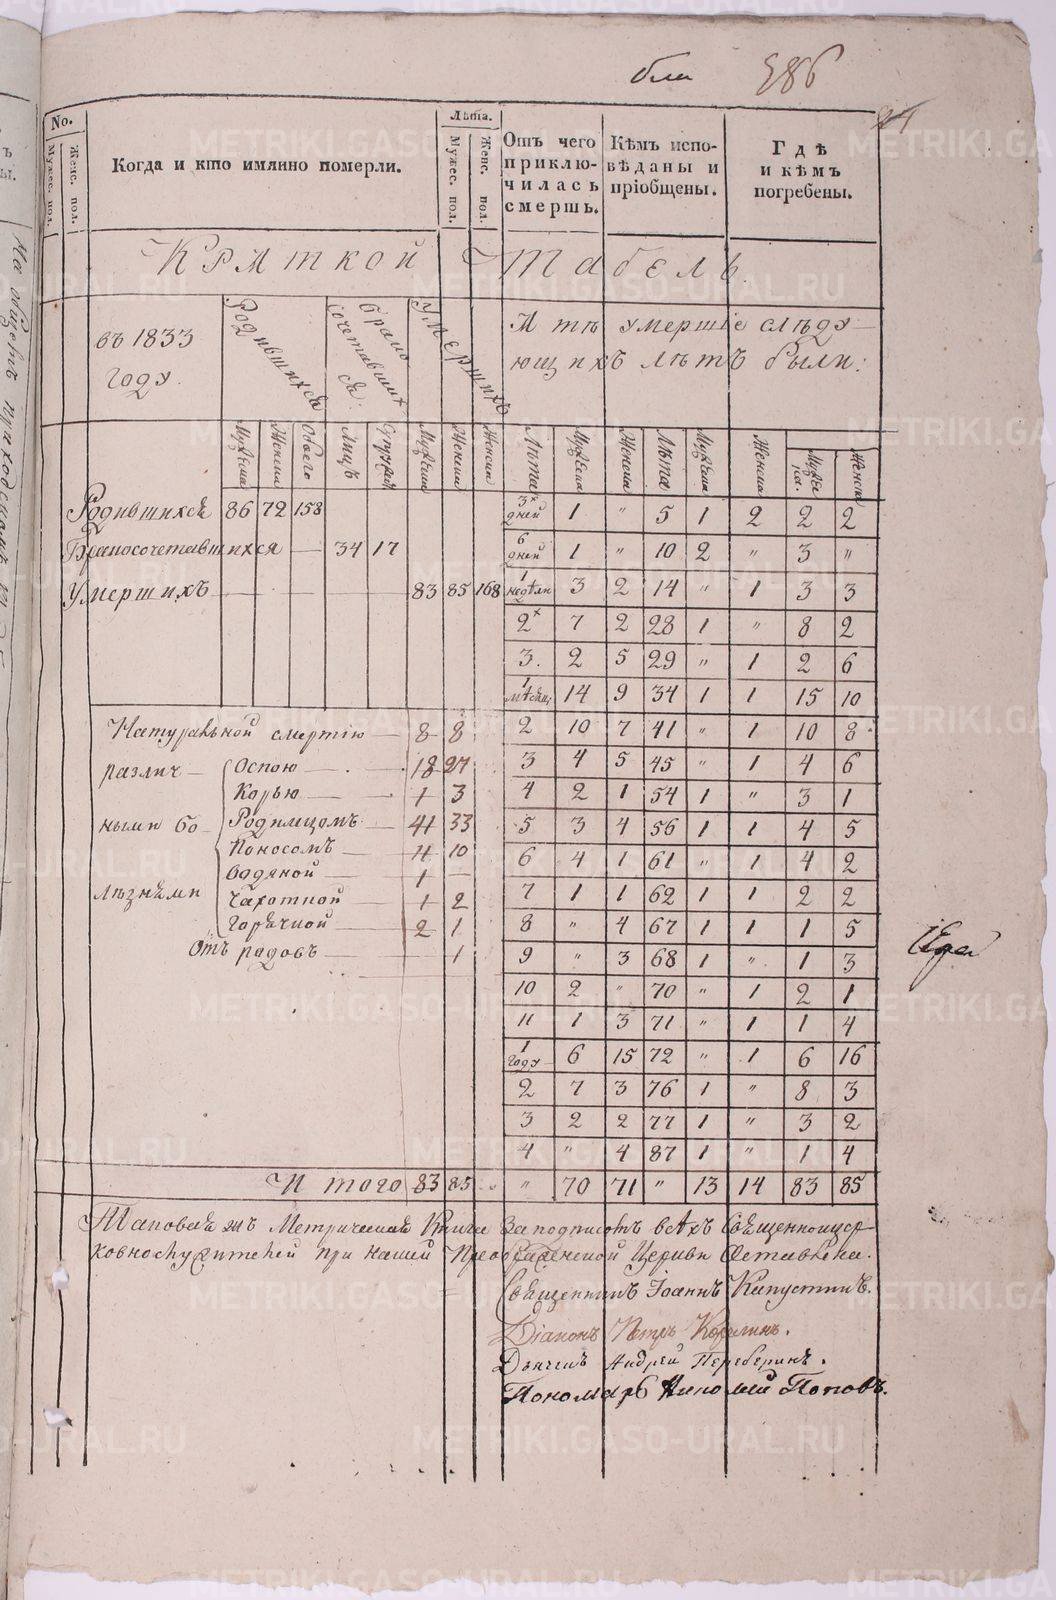 586
24
No.
Мужес. пол.
Женс. пол.
Когда и кто имянно померли.
Лѣта.
Мужес. пол.
Женс. пол.
Отъ чего приклю-чилась смерть.
Кѣмъ испо-вѣданы и пріобщены.
Гдѣ и кѣмъ погребены.
Краткой Табель
въ 1833 году.
Родившихся
брако сочетавших ся.
Умершихъ
А тѣ умершіе слѣду-
ющихъ лѣтъ были:
Мужеска Женска Обоего Лицъ Супруж Мужеска Женска Женска Лѣта Мужеска Женска Лѣта Мужеска Женска Мужеска. Женска
Родившихся 86 72 158 3 дней 1 " 5 1 2 2 2
Бракосочетавшихся — 34 17 6 дней 1 " 10 2 " 3 "
Умершихъ 83 85 168 1 недѣли 3 2 14 " 1 3 3
2 7 2 28 1 " 8 2
3. 2 5 29 " 1 2 6
1 мѣсяц 14 9 34 1 1 15 10
Натуральной смертію — 8 8 2 10 7 41 " 1 10 8
различ — Оспою — 18 27 3 4 5 45 " 1 4 6
Корью — 1 3 4 2 1 54 1 " 3 1
ными бо- Родимцомъ — 41 33 5 3 4 56 1 1 4 5
Поносомъ — 11 10 6 4 1 61 " 1 4 2
Водяной — 1 — 7 1 1 62 1 1 2 2
лѣзнями Чахотной — 1 2
Горячной — 2 1 8 " 4 67 1 1 1 5
Отъ родовъ — 1 9 " 3 68 1 " 1 3
10 2 " 70 " 1 2 1
11 1 3 71 " 1 1 4
1 году 6 15 72 " 1 6 16
2 7 3 76 1 " 8 3
3 2 2 77 1 " 3 2
4 " 4 87 1 " 1 4
И того 83 85 " 70 71 " 13 14 83 85
Таковая жъ Метрическая Книга За подписомъ всѣхъ Священноцер-
ковнослужителей при нашей Преображенской Церкви Оставлена.
Священникъ Іоаннъ Капустинъ.
Діаконъ Петръ Корелинъ.
Дьячекъ Андрей Переберинъ.
Пономарь Николай Поповъ.
METRIKI.GASO-URAL.RU